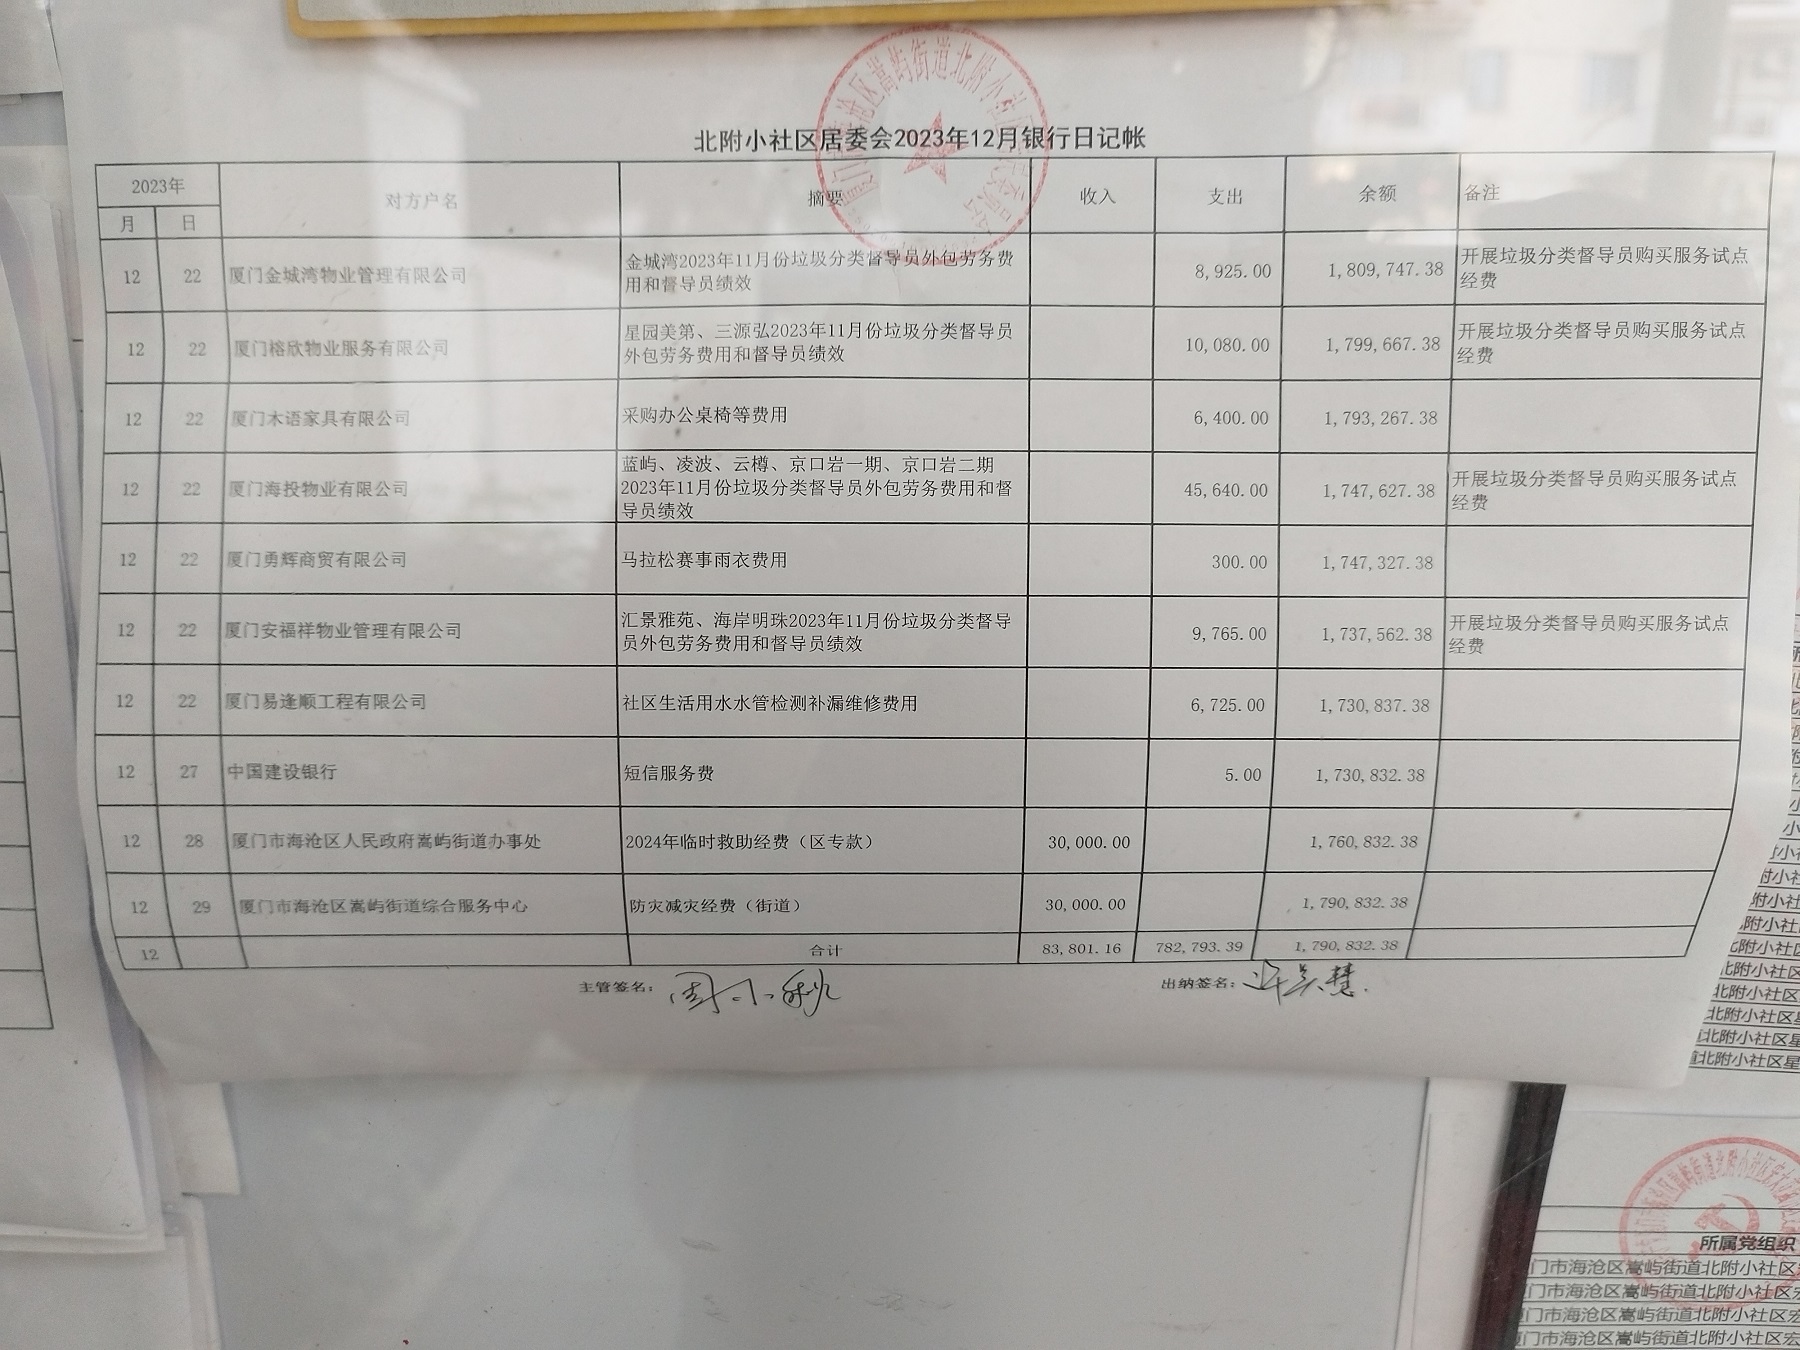 北附小社区居委会2023年12月银行日记帐
2023年 对方户名 摘要 收入 支出 余额 备注
月 日
12 22 厦门金城湾物业管理有限公司 金城湾2023年11月份垃圾分类督导员外包劳务费 8,925.00 1,809,747.38 开展垃圾分类督导员购买服务试点
用和督导员绩效 经费
12 22 厦门榕欣物业服务有限公司 星园美第、三源弘2023年11月份垃圾分类督导员 10,080.00 1,799,667.38 开展垃圾分类督导员购买服务试点
外包劳务费用和督导员绩效 经费
12 22 厦门木语家具有限公司 采购办公桌椅等费用 6,400.00 1,793,267.38
12 22 厦门海投物业有限公司 蓝屿、凌波、云樽、京口岩一期、京口岩二期 45,640.00 1,747,627.38 开展垃圾分类督导员购买服务试点
2023年11月份垃圾分类督导员外包劳务费用和督 经费
导员绩效
12 22 厦门勇辉商贸有限公司 马拉松赛事雨衣费用 300.00 1,747,327.38
12 22 厦门安福祥物业管理有限公司 汇景雅苑、海岸明珠2023年11月份垃圾分类督导 9,765.00 1,737,562.38 开展垃圾分类督导员购买服务试点
员外包劳务费用和督导员绩效 经费
12 22 厦门易逢顺工程有限公司 社区生活用水水管检测补漏维修费用 6,725.00 1,730,837.38
12 27 中国建设银行 短信服务费 5.00 1,730,832.38
12 28 厦门市海沧区人民政府嵩屿街道办事处 2024年临时救助经费（区专款） 30,000.00 1,760,832.38
12 29 厦门市海沧区嵩屿街道综合服务中心 防灾减灾经费（街道） 30,000.00 1,790,832.38
12 合计 83,801.16 782,793.39 1,790,832.38
主管签名： 周小秋 出纳签名：
所属党组织
门市海沧区嵩屿街道北附小社区
门市海沧区嵩屿街道北附小社区宏
门市海沧区嵩屿街道北附小社区宏
门市海沧区嵩屿街道北附小社区宏